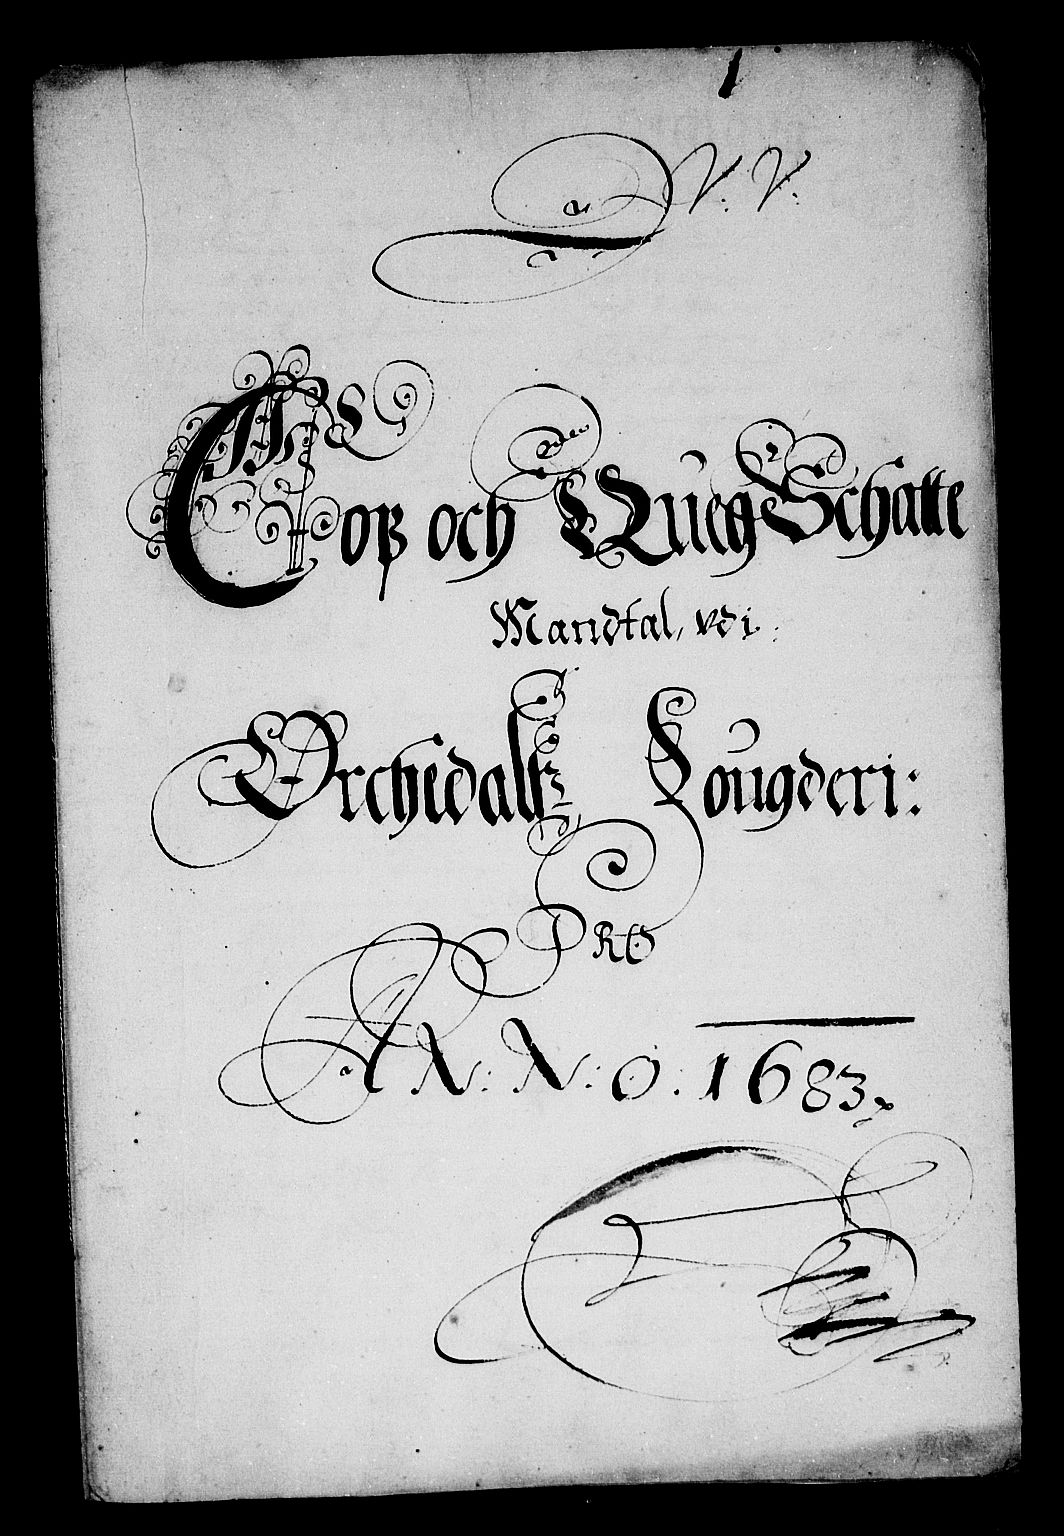 V: V:
Cop och QuegSchatte
Mandtal, vdi
Orchedals Fougderi:
PRO
AN: N: O: 1683